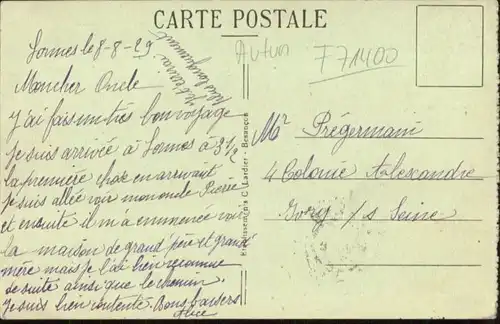 CARTE POSTALE
Autun
F71400
Sormes le 8-8-29
Mon cher Oncle
J'ai fais un très bon voyage
Je suis arrivée à Sormes à 3 1/2
la première chose en arrivant
Je suis allée voir mon oncle Pierre
et ensuite il m'a emmenée voir
la maison de grand'père et grand
mère mais je l'ai bien reconnue
de suite ainsi que le chemin.
Je suis bien contente. Bons baisers
Alice
plus longuement
Etablissements C. Lardier - Besançon
Mr Prégermain
4 Colonie Alexandre
Ivry s/s Seine